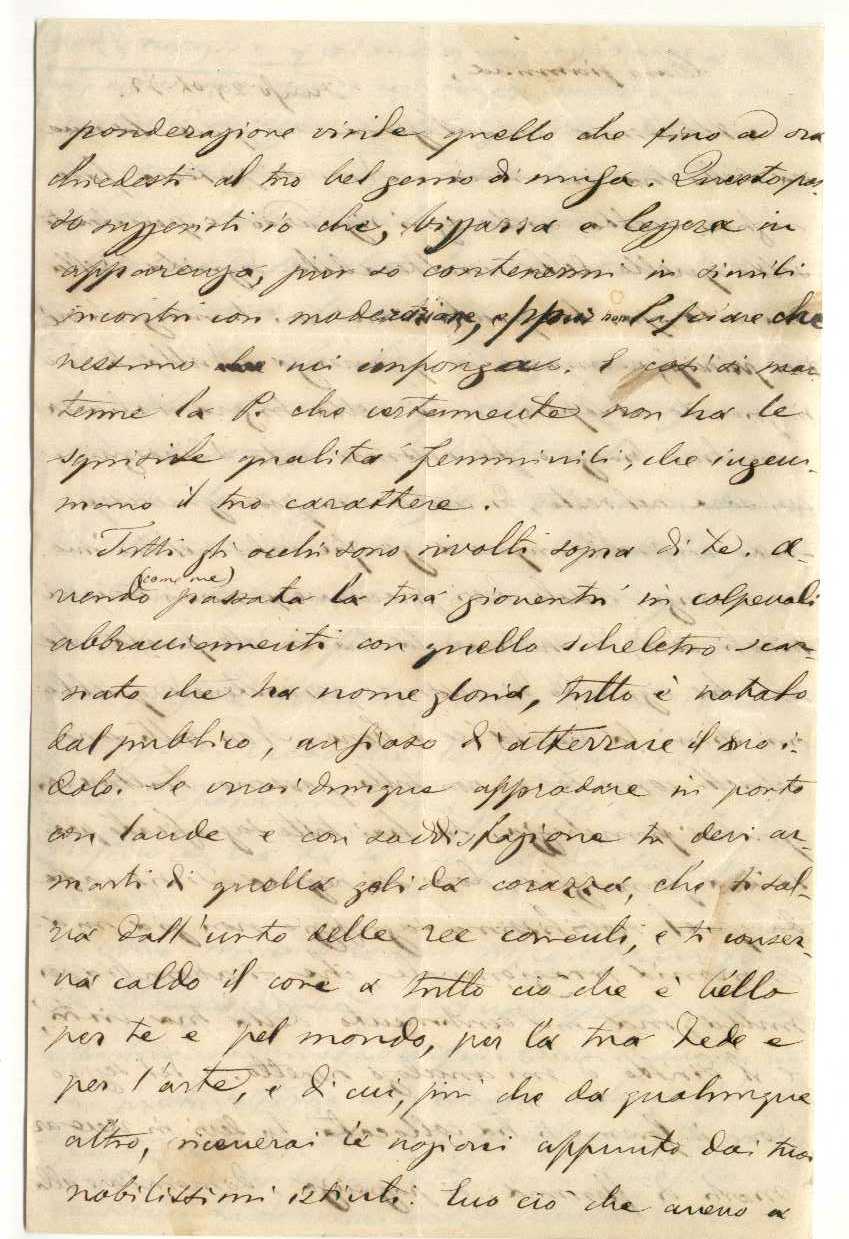 ponderazione virile quello che fino ad ora
chiedesti al tuo bel genio di musa. Questo pas-
so suggeriti io che, bizzarra e leggera in
apparenza, pur so contenermi in simili
incontri con moderazione, eppur non lasciare che
nessuno mi imponga. E così si man-
tenne la P. che certamente non ha le
squisite qualità femminili, che ingem-
mano il tuo carattere.
Tutti gli occhi sono rivolti sopra di te. A-
vendo (come me) passata la tua gioventù in colpevoli
abbracciamenti con quello scheletro scar-
nato che ha nome gloria, tutto è notato
dal pubblico, ansioso d'atterrare il suo i-
dolo. Se vuoi dunque approdare in porto
con laude e con soddisfazione tu devi ar-
marti di quella gelida corazza, che ti sal-
va dall'urto delle ree correnti, e ti conser-
va caldo il core a tutto ciò che è bello
per te e pel mondo, per la tua fede e
per l'arte, e di cui, più che da qualunque
altro, riceverai le nozioni appunto dai tuoi
nobilissimi istinti. Ecco ciò che avevo a